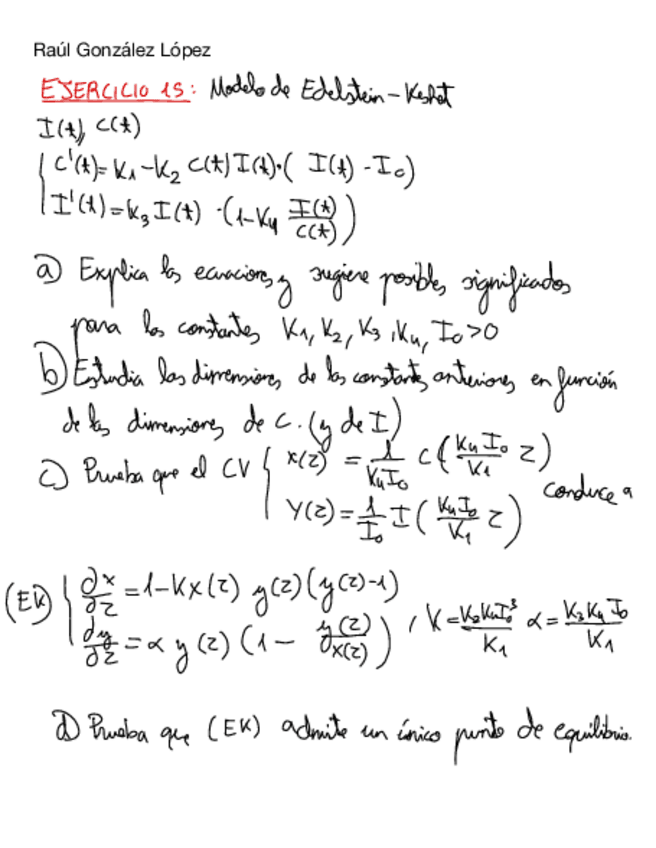 Raúl González López
EJERCICIO 15: Modelo de Edelstein-Keshet
I(t), C(t)
C'(t)=K₁-K₂ C(t)I(t)·( I(t) -I₀)
I'(t)=K₃I(t) ·(1-K₄ I(t)/C(t))
a) Explica las ecuaciones y sugiere posibles significados
para las constantes K₁, K₂, K₃, K₄, I₀>0
b) Estudia las dimensiones de las constantes anteriores en función
de las dimensiones de C. (y de I)
c) Prueba que el CV { x(z) = 1/(K₄I₀) C(K₄I₀/K₁ z)
Y(z)=1/I₀ I(K₄I₀/K₁ z) conduce a
(EK) { ∂x/∂z =1-Kx(z) y(z)(y(z)-1)
∂y/∂z = α y(z) (1- y(z)/x(z)) , K=K₂K₄I₀³/K₁ α=K₃K₄I₀/K₁
d) Prueba que (EK) admite un único punto de equilibrio.